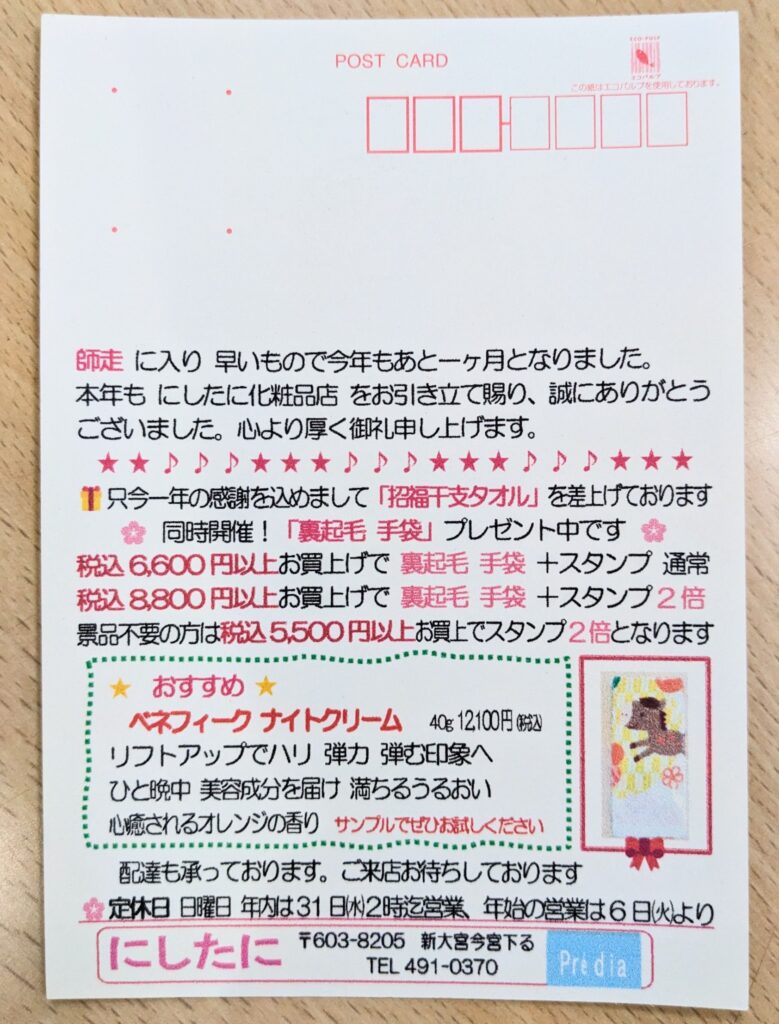 POST CARD
ECO-PULP
エコパルプ
この紙はエコパルプを使用しております。
師走 に入り 早いもので今年もあと一ヶ月となりました。
本年も にしたに化粧品店 をお引き立て賜り、誠にありがとう
ございました。心より厚く御礼申し上げます。
★★♪♪♪★★★♪♪♪★★★♪♪♪★★★
只今一年の感謝を込めまして「招福干支タオル」を差上げております
同時開催！「裏起毛 手袋」プレゼント中です
税込6,600円以上お買上げで 裏起毛 手袋 ＋スタンプ 通常
税込8,800円以上お買上げで 裏起毛 手袋 ＋スタンプ2倍
景品不要の方は税込5,500円以上お買上でスタンプ2倍となります
★ おすすめ ★
ベネフィーク ナイトクリーム 40g 12,100円(税込)
リフトアップでハリ 弾力 弾む印象へ
ひと晩中 美容成分を届け 満ちるうるおい
心癒されるオレンジの香り サンプルでぜひお試しください
配達も承っております。ご来店お待ちしております
定休日 日曜日 年内は31日(水)2時迄営業、年始の営業は6日(火)より
にしたに 〒603-8205 新大宮今宮下る
TEL 491-0370
Prédia